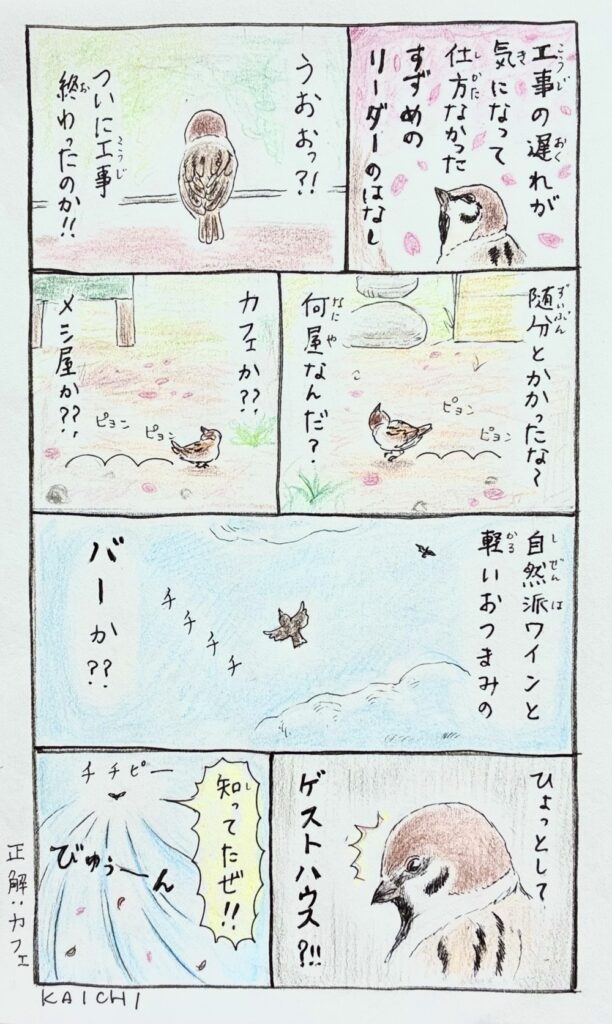 工事の遅れが
気になって
仕方なかった
すずめの
リーダーのはなし
うおおっ?!
ついに工事
終わったのか!!
随分とかかったな〜
何屋なんだ?
ピョン
ピョン
カフェか??
メシ屋か??
ピョン
ピョン
自然派ワインと
軽いおつまみの
バーか??
チチチチ
ひょっとして
ゲストハウス?!!
知ってたぜ!!
チチピー
びゅぅーん
正解:カフェ
KAICHI